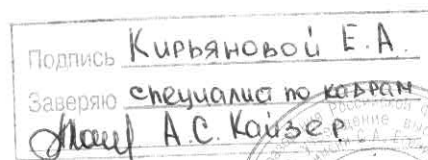 Подпись Кирьяновой Е.А.
Заверяю специалист по кадрам
А.С. Кайзер